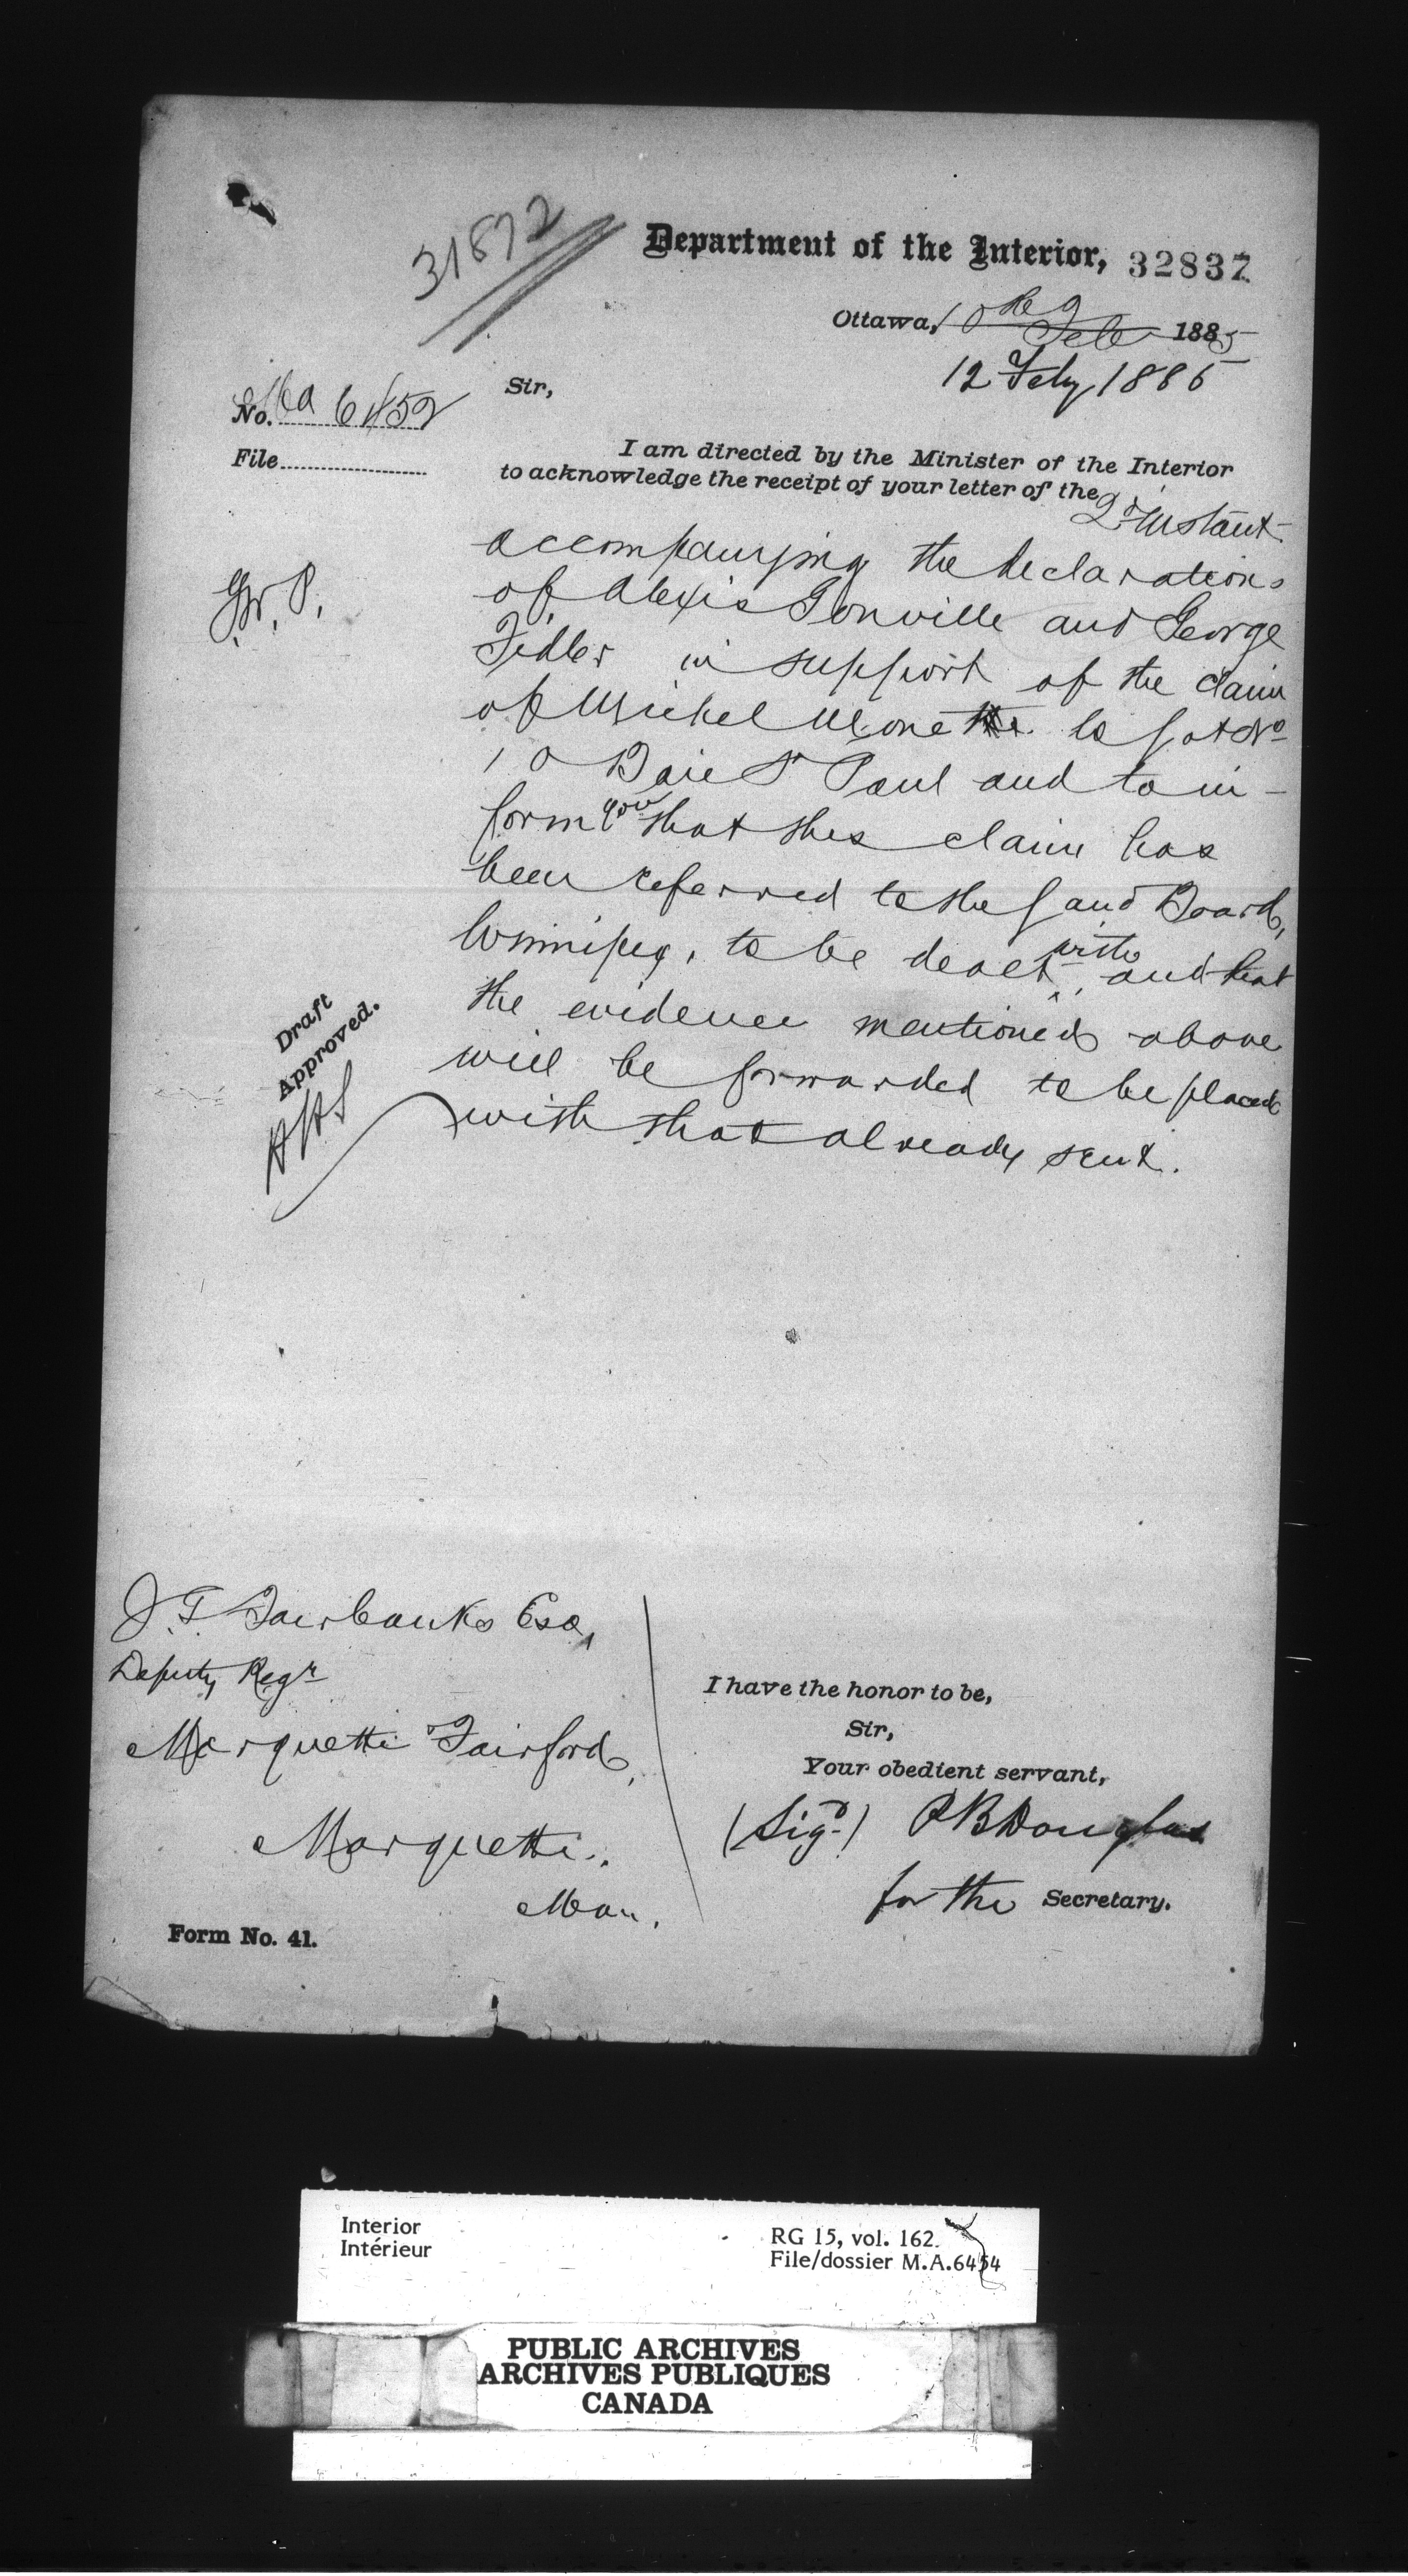 31872
Department of the Interior, 32837
Ottawa, 10 Feb 1885
12 Feby 1885
No. Ma 6452
File
Sir,
I am directed by the Minister of the Interior
to acknowledge the receipt of your letter of the
2d instant
accompanying the declarations
of Alexis Gonville and George
Fidler in support of the claim
of Michel Monette to Lot No
10 Baie St Paul and to in-
form you that this claim has
been referred to the Land Board,
Winnipeg, to be dealt with and that
the evidence mentioned above
will be forwarded to be placed
with that already sent.
Draft
Approved.
J. T. Fairbanks Esq,
Deputy Regr
Marquette Fairford,
Marquette.
Man.
I have the honor to be,
Sir,
Your obedient servant,
(Sigd) P B Douglas
for the Secretary.
Form No. 41.
Interior
Intérieur
RG 15, vol. 162
File/dossier M.A.6454
PUBLIC ARCHIVES
ARCHIVES PUBLIQUES
CANADA